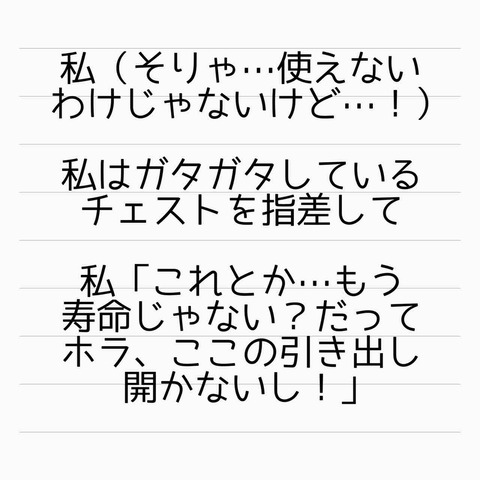 私（そりゃ…使えない
わけじゃないけど…！）
私はガタガタしている
チェストを指差して
私「これとか…もう
寿命じゃない？だって
ホラ、ここの引き出し
開かないし！」